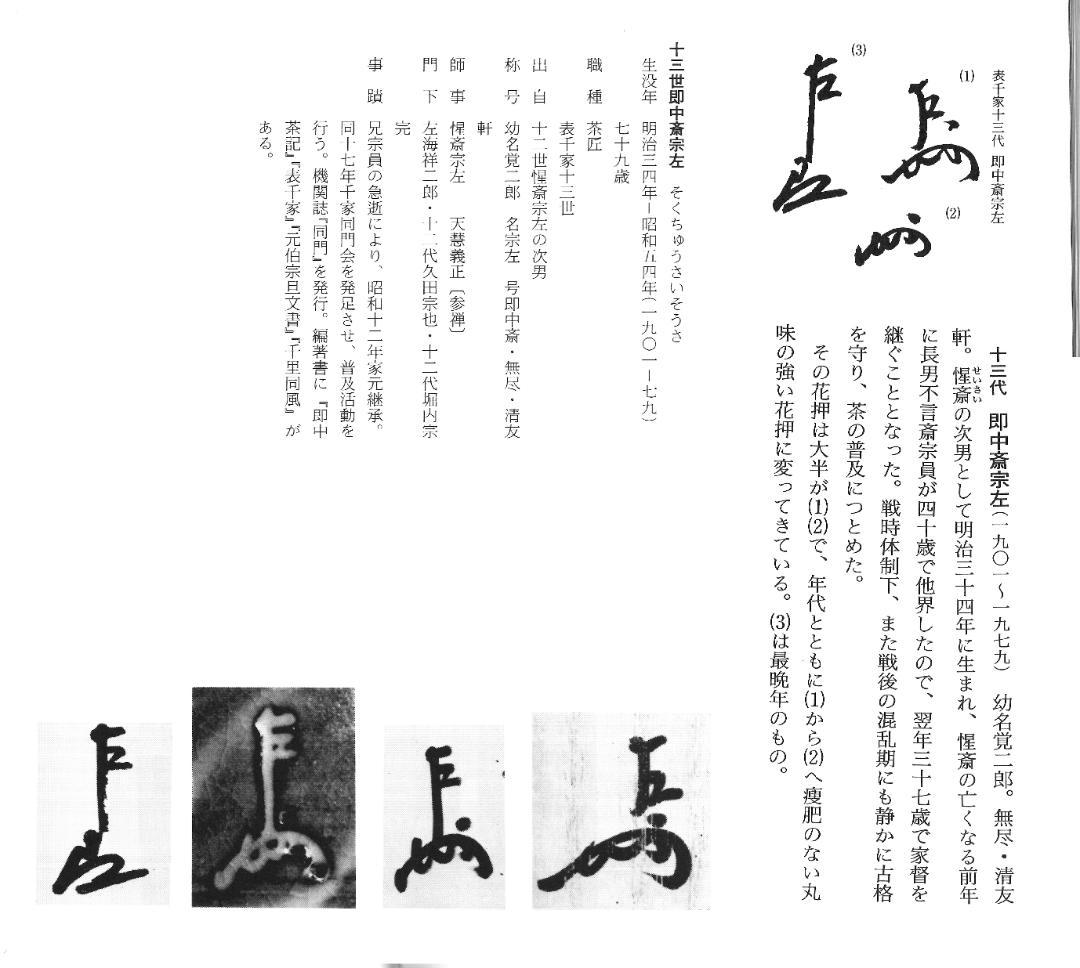 表千家十三代 即中斎宗左
(1)
(2)
(3)
十三代 即中斎宗左(一九〇一～一九七九) 幼名覚二郎。無尽・清友
軒。惺斎の次男として明治三十四年に生まれ、惺斎の亡くなる前年
せいさい
に長男不言斎宗員が四十歳で他界したので、翌年三十七歳で家督を
継ぐこととなった。戦時体制下、また戦後の混乱期にも静かに古格
を守り、茶の普及につとめた。
その花押は大半が(1)(2)で、年代とともに(1)から(2)へ痩肥のない丸
味の強い花押に変ってきている。(3)は最晩年のもの。
十三世即中斎宗左 そくちゅうさいそうさ
生没年 明治三四年―昭和五四年(一九〇一―七九)
七十九歳
職種 茶匠
表千家十三世
出自 十二世惺斎宗左の次男
称号 幼名覚二郎 名宗左 号即中斎・無尽・清友
軒
師事 惺斎宗左 天慧義正〔参禅〕
門下 左海祥二郎・十二代久田宗也・十二代堀内宗
完
事蹟 兄宗員の急逝により、昭和十二年家元継承。
同十七年千家同門会を発足させ、普及活動を
行う。機関誌『同門』を発行。編著書に『即中
茶記』『表千家』『元伯宗旦文書』『千里同風』が
ある。